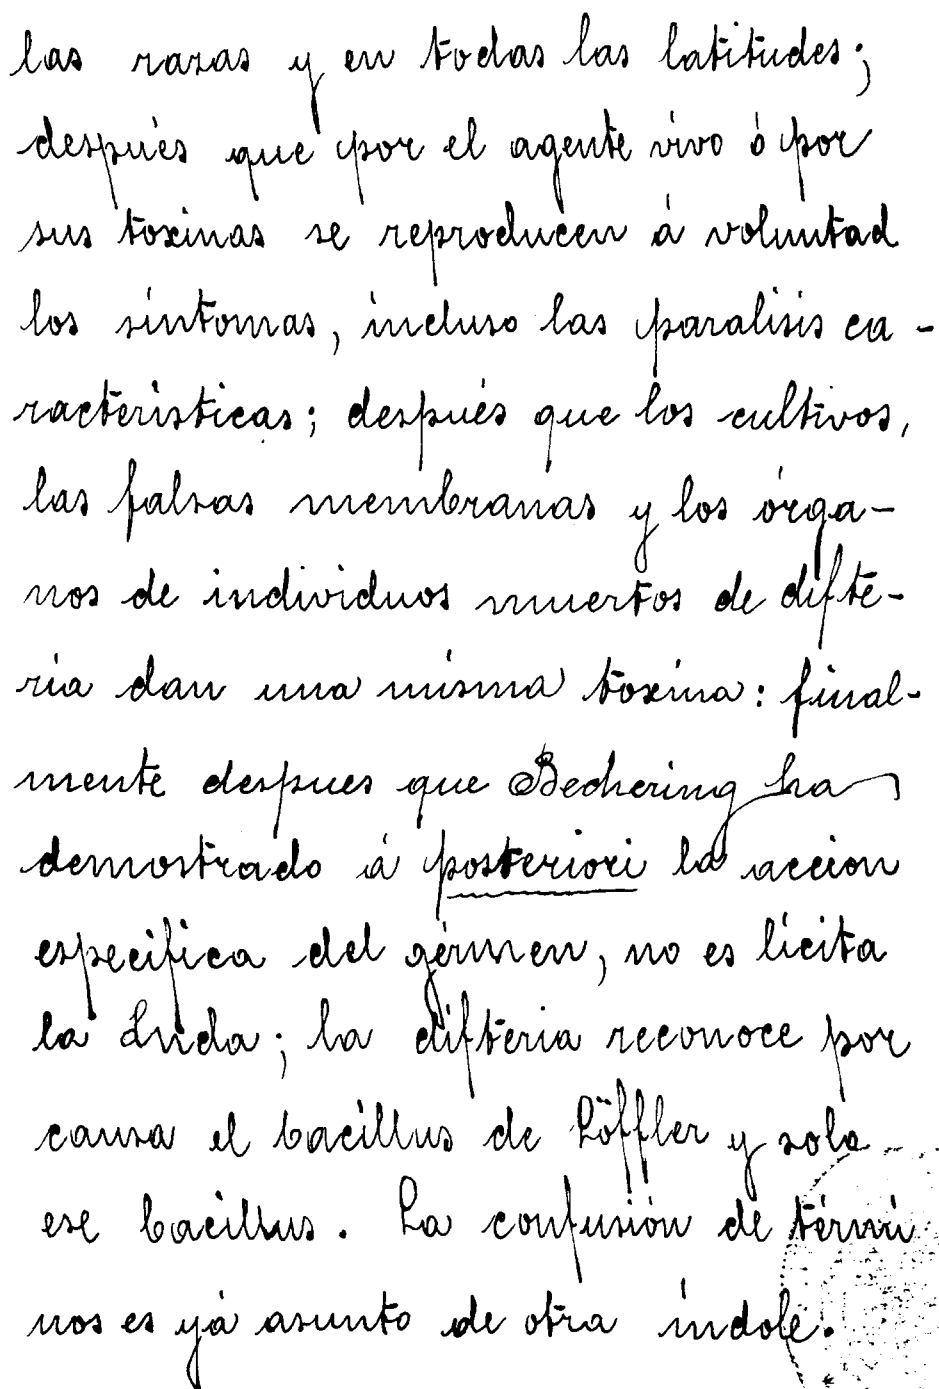 las razas y en todas las latitudes;
después que por el agente vivo ó por
sus toxinas se reproducen á voluntad
los síntomas, incluso las paralisis ca-
racterísticas; después que los cultivos,
las falsas membranas y los órga-
nos de individuos muertos de difte-
ria dan una misma toxina: final-
mente despues que Bechering ha
demostrado á posteriori la accion
especifica del gérmen, no es lícita
la duda; la difteria reconoce por
causa el bacillus de Löffler y solo
ese bacillus. La confusión de térmi
nos es yá asunto de otra índole.